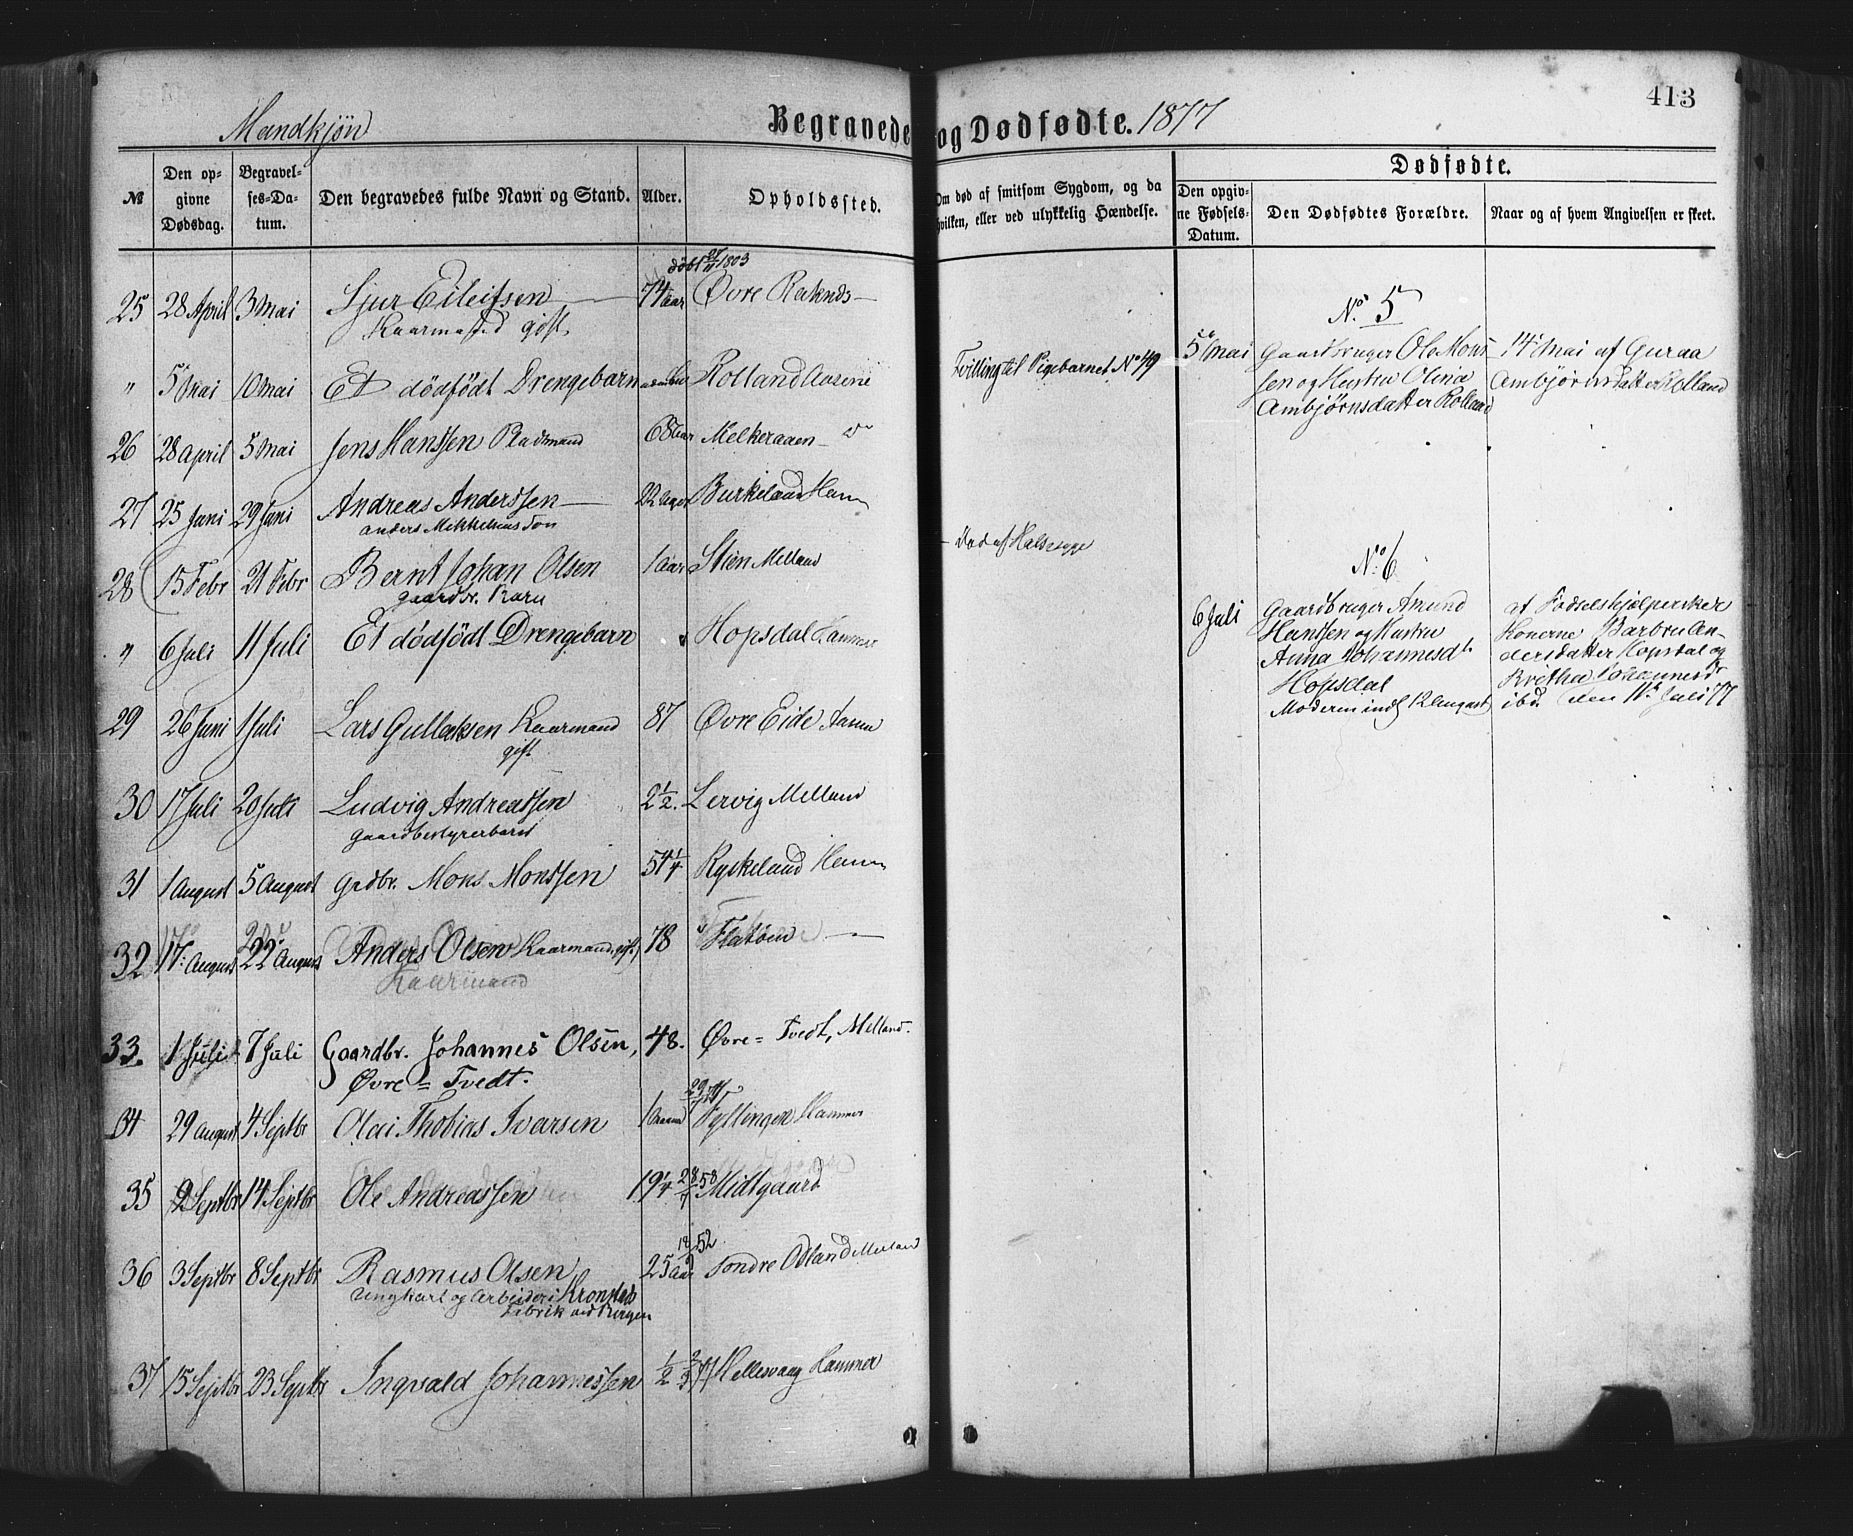 413
Mandkjøn
Begravede og Dødfødte. 1877
№
Den opgivne Dødsdag.
Begravelses-Datum.
Den begravedes fulde Navn og Stand.
Alder.
Opholdssted.
Om død af smitsom Sygdom, og da hvilken, eller ved ulykkelig Hændelse.
Dødfødte.
Den opgivne Fødsels-Datum.
Den Dødfødtes Forældre.
Naar og af hvem Angivelsen er skeet.
døbt 1803
25 28 April 3 Mai Sjur Eileifsen 74 aar Øvre Reknds
Kaarmand gift
No 5
" 5 Mai 10 Mai Et dödfödt Drengebarn Rolland Aasene Tvilling til Pigebarnet No 49 5te Mai Gaardbruger Ole Mons- 14 Mai af Guraa
sen og Hustru Olina Ambjørnsdatter Rolland
Ambjørnsdatter Rolland
26 28 April 5 Mai Jens Hanssen Radmand 68 aar Melkeraaen
27 25 Juni 29 Juni Andreas Anderssen 22 Birkeland Ham
anders Mikkelsens Søn
Död af Halsesyge
No 6
28 15 Febr 21 Febr Bernt Johan Olsen 1 Aar Stien Melland
gaardbr. Barn
" 6 Juli 11 Juli Et dödfödt Drengebarn Hopsdal Hammer 6 Juli Gaardbruger Amund af Fødselshjælperske
Hanssen og Hustru Konerne Barbru An-
Anna Johannesdt dersdatter Hopsdal og
Hopsdal Britha Johannesd
Moderen indl 12 August ibd. den 11te Juli 77
29 26 Juni 1 Juli Lars Gullaksen Kaarmand 87 Øvre Eide
gift
30 17 Juli 20 Juli Ludvig Andreassen 2½. Lervig Melland
Gaardbestyrerbarn
31 1 August 5 August Grdbr. Mons Monssen 54¼ Ryskeland Ham
32 17: August 22 August Anders Olsen Kaarmand, gift 78 Flatöen
Kaarmand
33. 1 Juli 7 Juli Gaardbr. Johannes Olsen, 48. Øvre = Tvedt, Melland.
Øvre = Tvedt.
34 29 August 4 Septbr Olai Thobias Iversen 1 Fyllingen Hammer
35 9 Septbr 14 Septbr Ole Andreassen 19¼ 28/7 58 Midtgaard
36 3 Septbr 8 Septbr Rasmus Olsen 25 Aar 52 Søndre Odland Melland
Ungkarl og Arbeider i Kronsteds
Fabrik ved Bergen
37 15 Septbr 23 Septbr Ingvald Johannessen ½ Hellesvaag Hammer